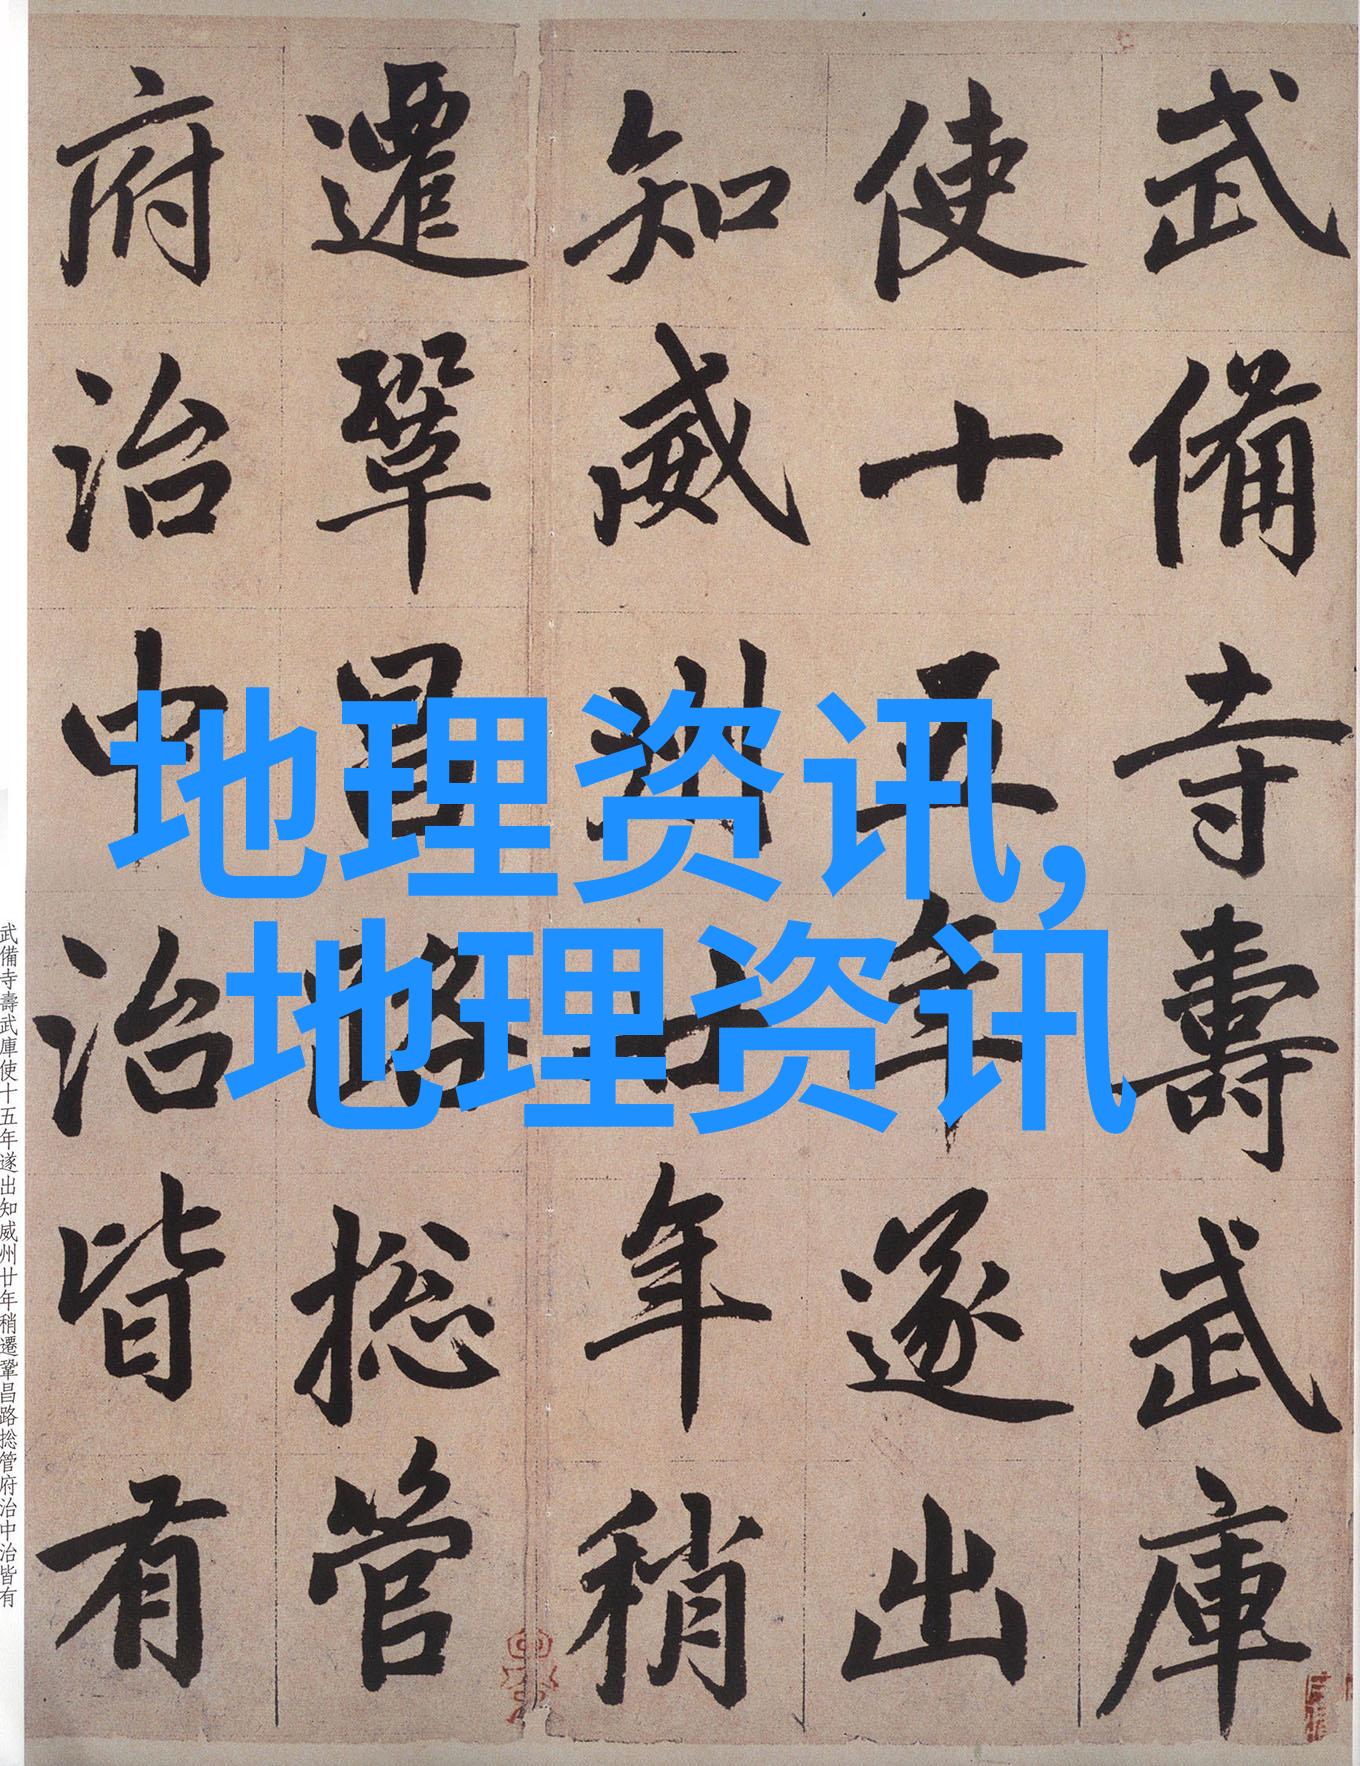 武備寺壽武庫
使十五年遂出
知威州廿年稍
遷鞏昌路捴管
府治中治皆有
地理资讯,
地理资讯
武備寺壽武庫使十五年遂出知威州廿年稍遷鞏昌路捴管府治中治皆有